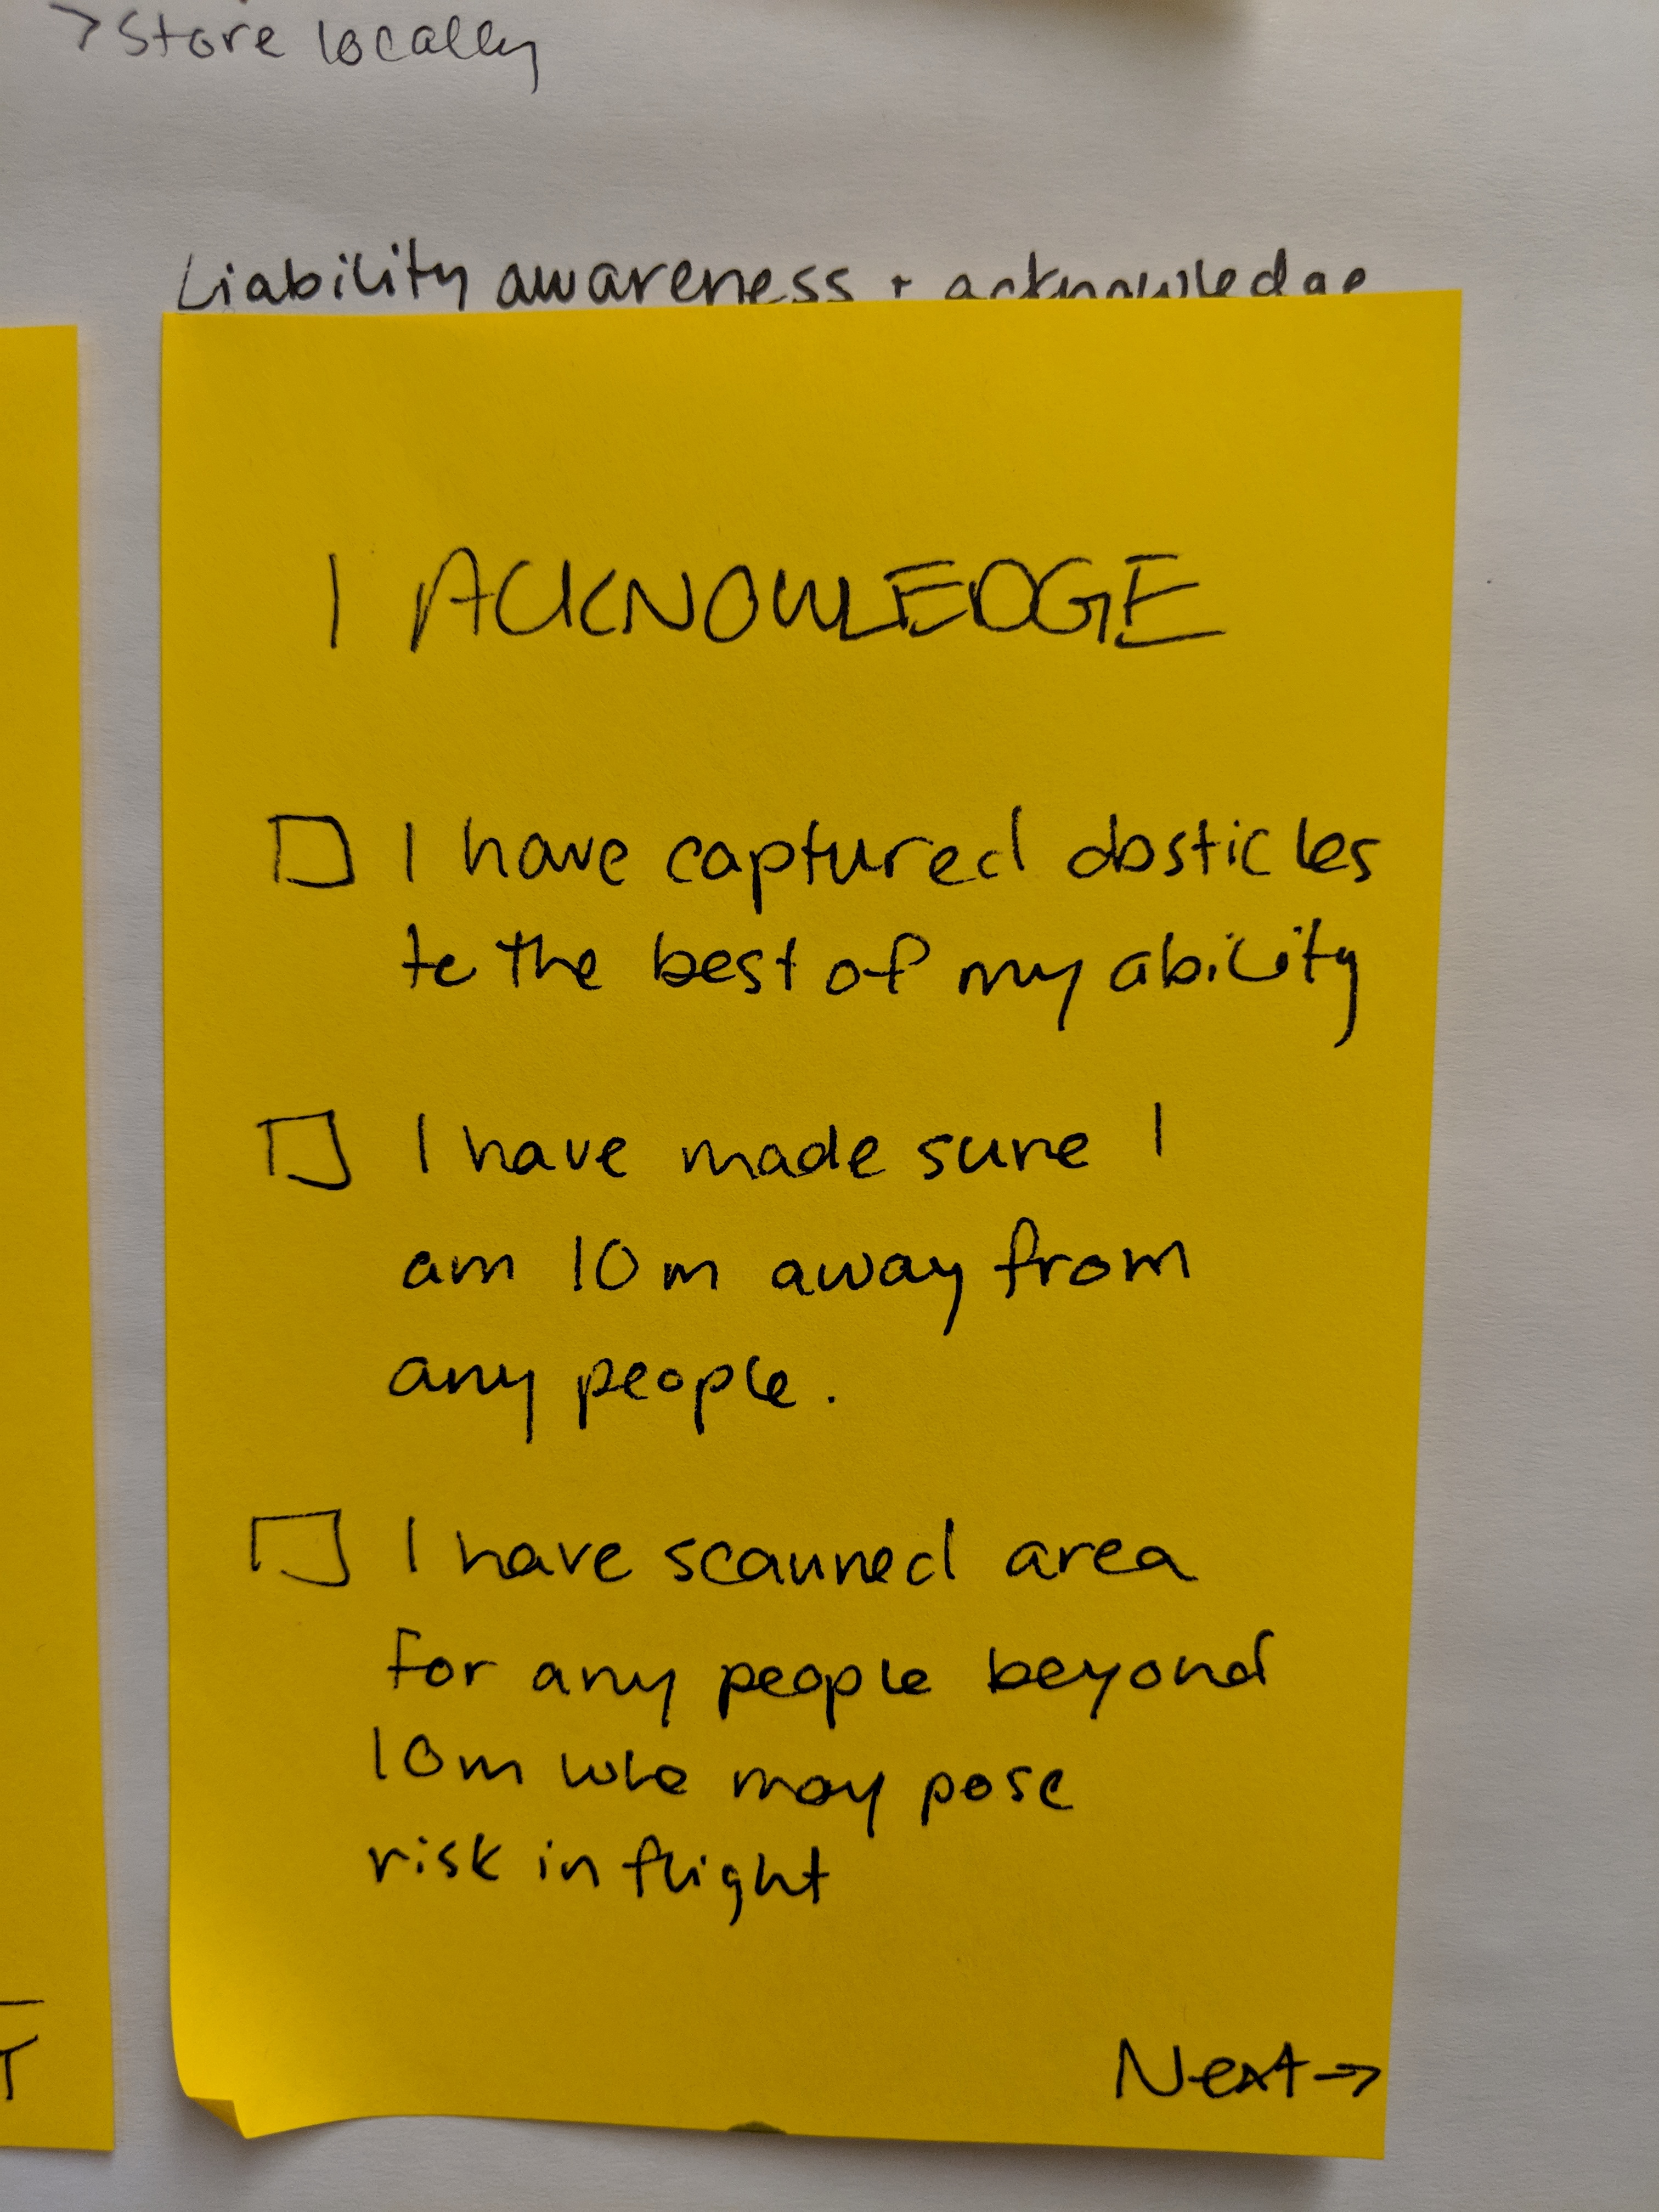 > Store locally
Liability awareness + acknowledge
I ACKNOWLEDGE
I have captured obsticles
to the best of my ability
I have made sure I
am 10m away from
any people.
I have scanned area
for any people beyond
10m who may pose
risk in flight
Next →
T